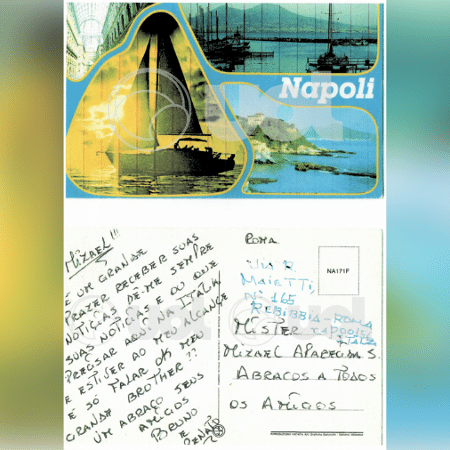 Napoli
MIZAEL!!!
É UM GRANDE
PRAZER RECEBER SUAS
NOTIÇAS DE-ME SEMPRE
SUAS NOTICAS E OU QUE
PRECISAR AQUI NA ITALIA
E ESTIVER AO MEU ALCANCE
É SÓ FALAR OK MEU
GRANDE BROTHER??
UM ABRAÇO SEUS
AMIGOS
BRUNO
E
RENATO
ROMA
VIA R
MAIETTI
N° 165
REBIBBIA-ROMA
ITALIA
NA171F
MISTER
MIZAEL APARECIDA S.
ABRAÇOS A TODOS
OS AMIGOS